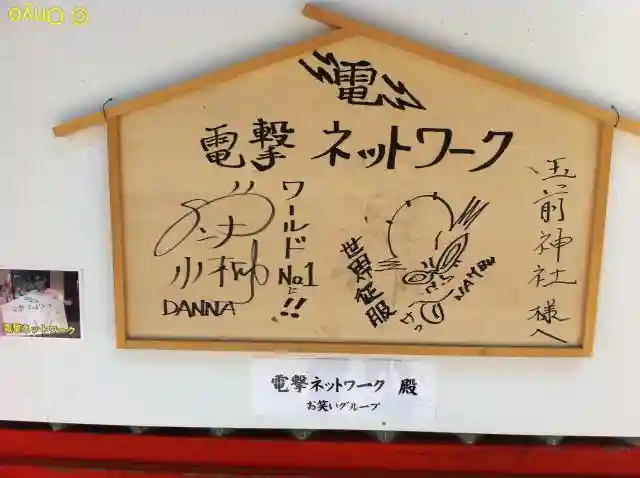 © Onyo
電
電撃 ネットワーク
五前神社様へ
ワールド
No.1
に!!
DANNA
小柳
世界征服
NAMBU
電撃ネットワーク 殿
お笑いグループ
電撃ネットワーク